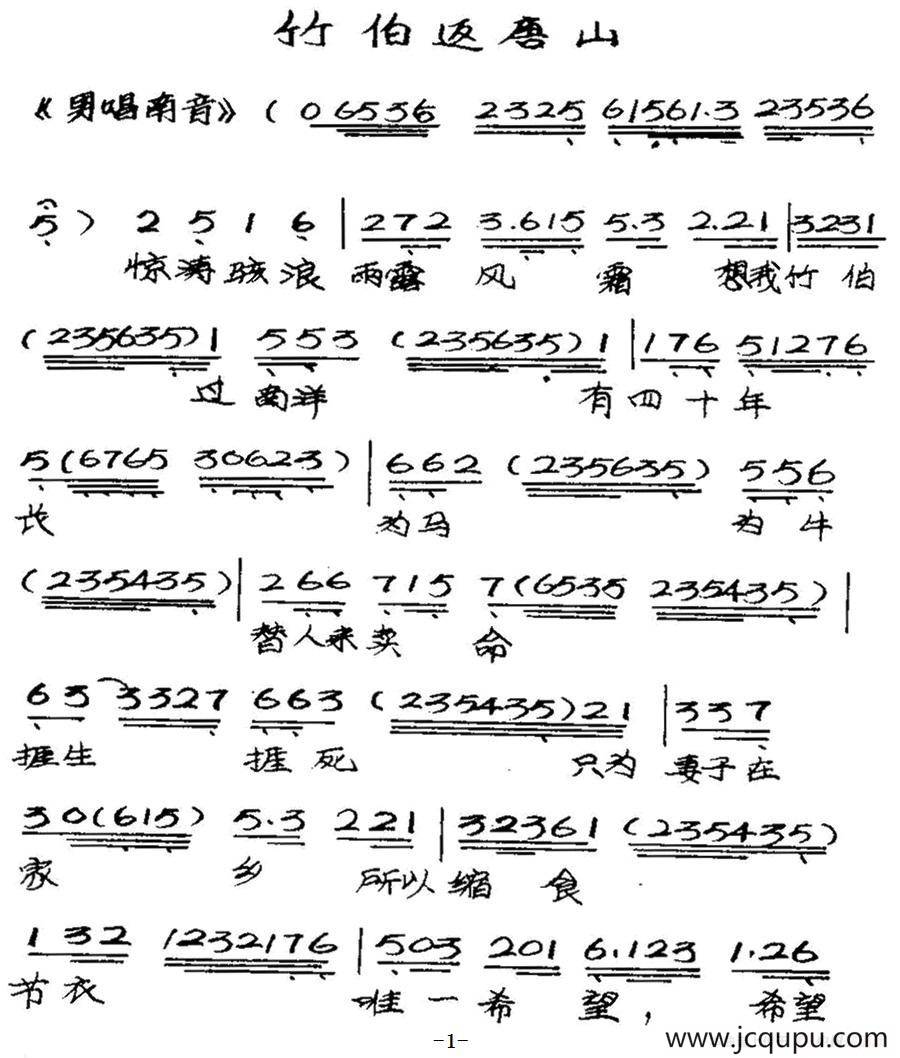 竹伯返唐山
《男唱南音》(0 6536 2325 61561.3 23536
5) 2 5 1 6 | 272 3.615 5.3 2.21 | 3231
惊涛骇浪 雨露 风 霜 想我竹伯
(235635)1 553 (235635)1 | 176 51276
过南洋 有四十年
5(6765 30623) | 662 (235635) 556
长 为马 为牛
(235435) | 266 715 7(6535 235435) |
替人来卖 命
63 3327 663 (235435)21 | 337
捱生 捱死 只为 妻子在
30(615) 5.3 221 | 32361 (235435)
家 乡 所以缩 食
1 32 1232176 | 503 201 6.123 1.26
节衣 唯一希 望, 希望
-1-
www.jcqupu.com